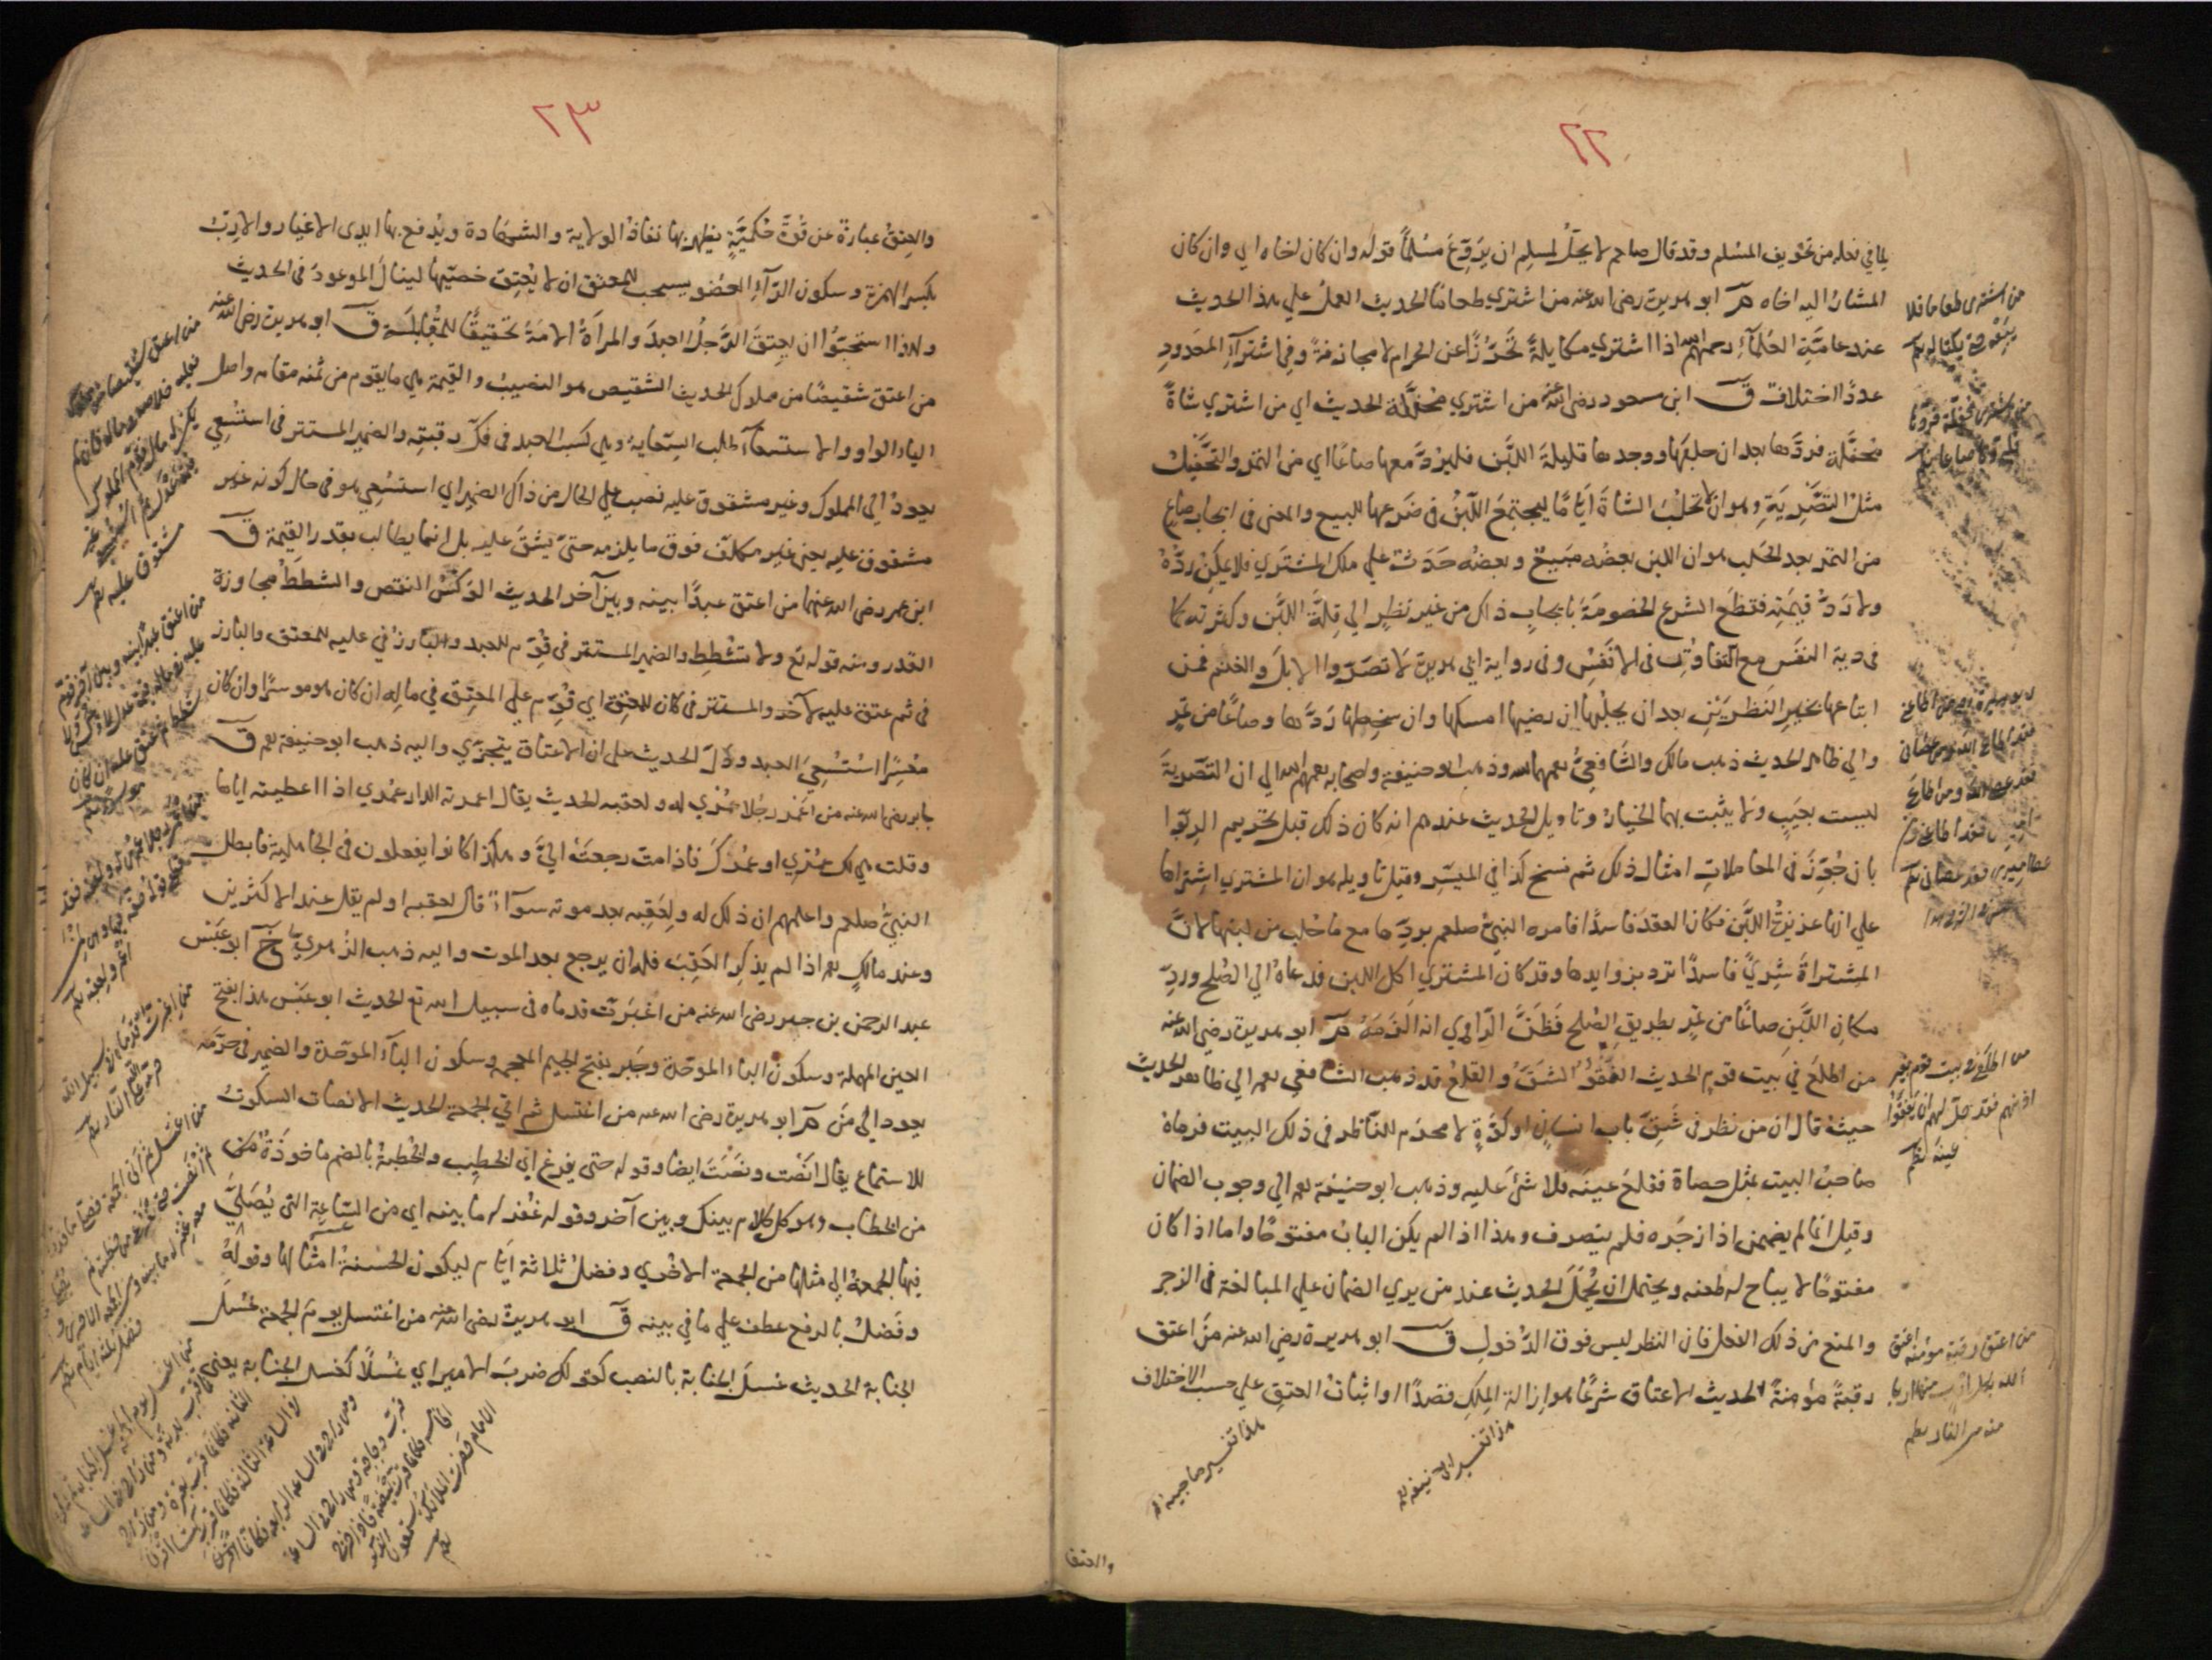 ٢٢
لما في فعله من تخويف المسلم وقد قال صلعم لا يحل لمسلم ان يروع مسلما قوله وان كان اخاه اي وان كان
المشار اليه اخاه م ابو هريرة رضي الله عنه من اشتري طعاما الحديث العمل علي هذا الحديث
عند عامة العلمآء رحمهم الله اذا اشتري مكايلة تحرزا عن الحرام لا مجازفة وفي اشترآء المعدود
عددا اختلاف ق ابن مسعود رضي الله عنه من اشتري محفلة الحديث اي من اشتري شاة
محفلة فردها بعد ان حلبها ووجدها قليلة اللبن فليرد معها صاعا اي من التمر والتحفيل
مثل التصرية وهو ان لا تحلب الشاة اياما ليجتمع اللبن في ضرعها للبيع والمعنى في ايجاب صاع
من التمر بعد الحلب هو ان اللبن بعضه مبيع وبعضه حدث علي ملك المشتري فلا يمكن رده
ولا رد قيمته فقطع الشرع الخصومة بايجاب ذاك من غير نظر الي قلة اللبن وكثرته كما
في دية النفس مع التفاوت في الانفس وفي رواية ابي هريرة لا تصروا الابل والغنم فمن
ابتاعها بخير النظرين بعد ان يحلبها ان رضيها امسكها وان سخطها ردها وصاعا من تمر
والي ظاهر الحديث ذهب مالك والشافعي رحمهما الله وذهب ابو حنيفة واصحابه رحمهم الله الي ان التصرية
ليست بعيب ولا يثبت بها الخيار وتاويل الحديث عندهم انه كان ذلك قبل تحريم الربوا
بان جوز في المعاملات امثال ذلك ثم نسخ كذا في الميسر وقيل تاويله هو ان المشتري اشتراها
علي انها غزيرة اللبن فكان العقد فاسدا فامره النبي صلعم بردها مع ما حلب من لبنها لان
المشتراة شرى فاسدا ترد بزوايدها وقد كان المشتري اكل اللبن فدعاه الي الصلح ورد
مكان اللبن صاعا من تمر بطريق الصلح فظن الراوي انه الزمه م ابو هريرة رضي الله عنه
من اطلع في بيت قوم الحديث الفقؤ الشق والقلع قد ذهب الشافعي رحمه الي ظاهر الحديث
حيث قال ان من نظر في شق باب انسان او كوة لا محرم للناظر في ذلك البيت فرماه
صاحب البيت بمثل حصاة فقلع عينه فلا شئ عليه وذهب ابو حنيفة رحمه الي وجوب الضمان
وقيل انما لم يضمن اذا زجره فلم ينصرف وهذا اذا لم يكن الباب مفتوحا واما اذا كان
مفتوحا لا يباح له طعنه ويحتمل ان يحمل الحديث عند من يري الضمان علي المبالغة في الزجر
والمنع من ذلك الفعل فان النظر ليس فوق الدخول ق ابو هريرة رضي الله عنه من اعتق
رقبة مؤمنة الحديث الاعتاق شرعا هو ازالة الملك قصدا او اثبات العتق علي حسب الاختلاف
من اشترى طعاما فلا
يبعه حتى يكتاله
من اطلع في بيت قوم بغير
اذنهم فقد حل لهم ان يفقؤا
عينه
من اعتق رقبة مؤمنة اعتق
الله بكل ارب منها اربا
منه من النار
والعتق
٢٣
والعتق عبارة عن قوة حكمية يظهر بها نفاذ الولاية والشهادة ويدفع بها ايدى الاغيار والارب
بكسر الهمزة وسكون الرآء العضو يستحب للمعتق ان لا يعتق خصيها لينال الموعود في الحديث
ولهذا استحبوا ان يعتق الرجل العبد والمرأة الامة تحقيقا للمقابلة ق ابو هريرة رضي الله عنه
من اعتق شقيصا من مملوك الحديث الشقيص هو النصيب والقيمة هي ما يقوم من ثمنه مقامه واصل
الياء الواو والاستسعآء طلب السعاية وهي كسب العبد في فك رقبته والضمير المستتر في استسعي
يعود الي المملوك وغير مشقوق عليه نصب علي الحال من ذاك الضمير اي استسعي هو في حال كونه غير
مشقوق عليه يعني غير مكلف فوق ما يلزمه حتى يشق عليه بل انما يطالب بقدر القيمة ق
ابن عمر رضي الله عنهما من اعتق عبدا بينه وبين آخر الحديث الوكس النقص والشطط مجاوزة
القدر ومنه قوله تع ولا تشطط والضمير المستتر في قوم للعبد والبارز في عليه للمعتق والبارز
في ثم عتق عليه لآخر والمستتر في كان للمعتق اي قوم علي المعتق في ماله ان كان هو موسرا وان كان
معسرا استسعي العبد ودل الحديث على ان الاعتاق يتجزي واليه ذهب ابو حنيفة رحمه ق
جابر رضي الله عنه من اعمر رجلا عمري له ولعقبه الحديث يقال اعمرته الدار عمري اذا اعطيته اياها
وقلت هي لك عمري او عمرك فاذا مت رجعت الي وهكذا كانوا يفعلون في الجاهلية فابطل
النبي صلعم واعلمهم ان ذلك له ولعقبه بعد موته سوآء قال لعقبه او لم يقل عند الاكثرين
وعند مالك رحمه اذا لم يذكر العقب فله ان يرجع بعد الموت واليه ذهب الزهري خ ابو عبس
عبد الرحمن بن جبر رضي الله عنه من اغبرت قدماه في سبيل الله تع الحديث ابو عبس هذا بفتح
العين المهملة وسكون الباء الموحدة وجبر بفتح الجيم المعجمه وسكون البآء الموحدة والضمير في حرمه
يعود الي من م ابو هريرة رضي الله عنه من اغتسل ثم اتي الجمعة الحديث الانصات السكوت
للاستماع يقال انصت ونصت ايضا وقوله حتى يفرغ اي الخطيب والخطبة بالضم ماخوذة من
من الخطاب وهو كل كلام بينك وبين آخر وقوله غفر له ما بينه اي من الساعة التى يصلي
فيها الجمعة الي مثلها من الجمعة الاخري وفضل ثلاثة ايام ليكون الحسنة امثالها وقوله
وفضل بالرفع عطف علي ما في بينه ق ابو هريرة رضي الله عنه من اغتسل يوم الجمعة غسل
الجنابة الحديث غسل الجنابة بالنصب كقولك ضرب الامير اي غسلا كغسل الجنابة يعني